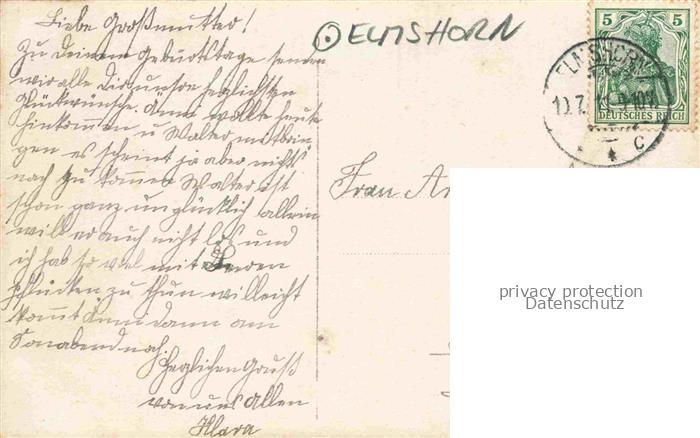 Liebe Großmutter!
Zu Deinem Geburtstage senden
wir alle Dir unsre herzlichsten
Glückwünsche. Anni wollte heute
hinkommen u Walter mitbrin
gen es scheint ja aber nichts
nach zu kommen Walter ist
schon ganz unglücklich allein
will er auch nicht los und
ich hab so viel mit Beeren
pflücken zu thun vielleicht
kommt Anni dann am
Sonabend nach.
Herzlichen Gruß
von uns Allen
Klara
ELMSHORN
5
DEUTSCHES REICH
ELMSHORN
9-10V.
* * C
Frau
privacy protection
Datenschutz